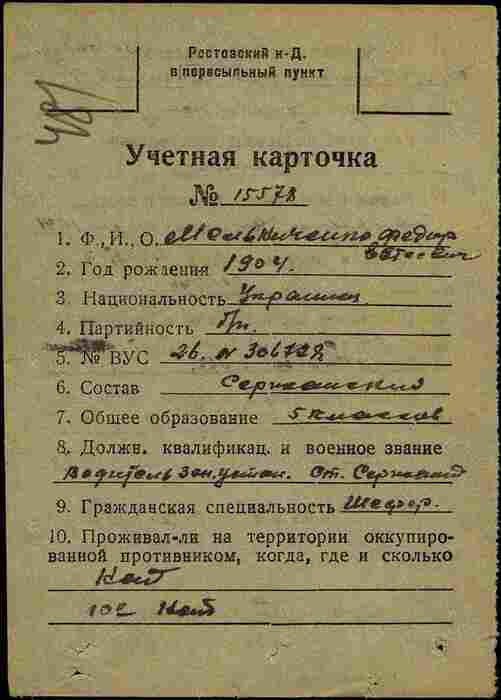 Ростовский н-Д.
в пересыльный пункт
Учетная карточка
№ 15578
1. Ф., И., О. Мельниченко Федор
2. Год рождения 1904.
3. Национальность Украинец
4. Партийность б/п.
5. № ВУС 26.
6. Состав Сержантский
7. Общее образование 5 классов
8. Должн. квалификац. и военное звание
Водитель Зен. устан. Ст. Сержант
9. Гражданская специальность Шофер.
10. Проживал-ли на территории оккупиро-
ванной противником, когда, где и сколько
Нет